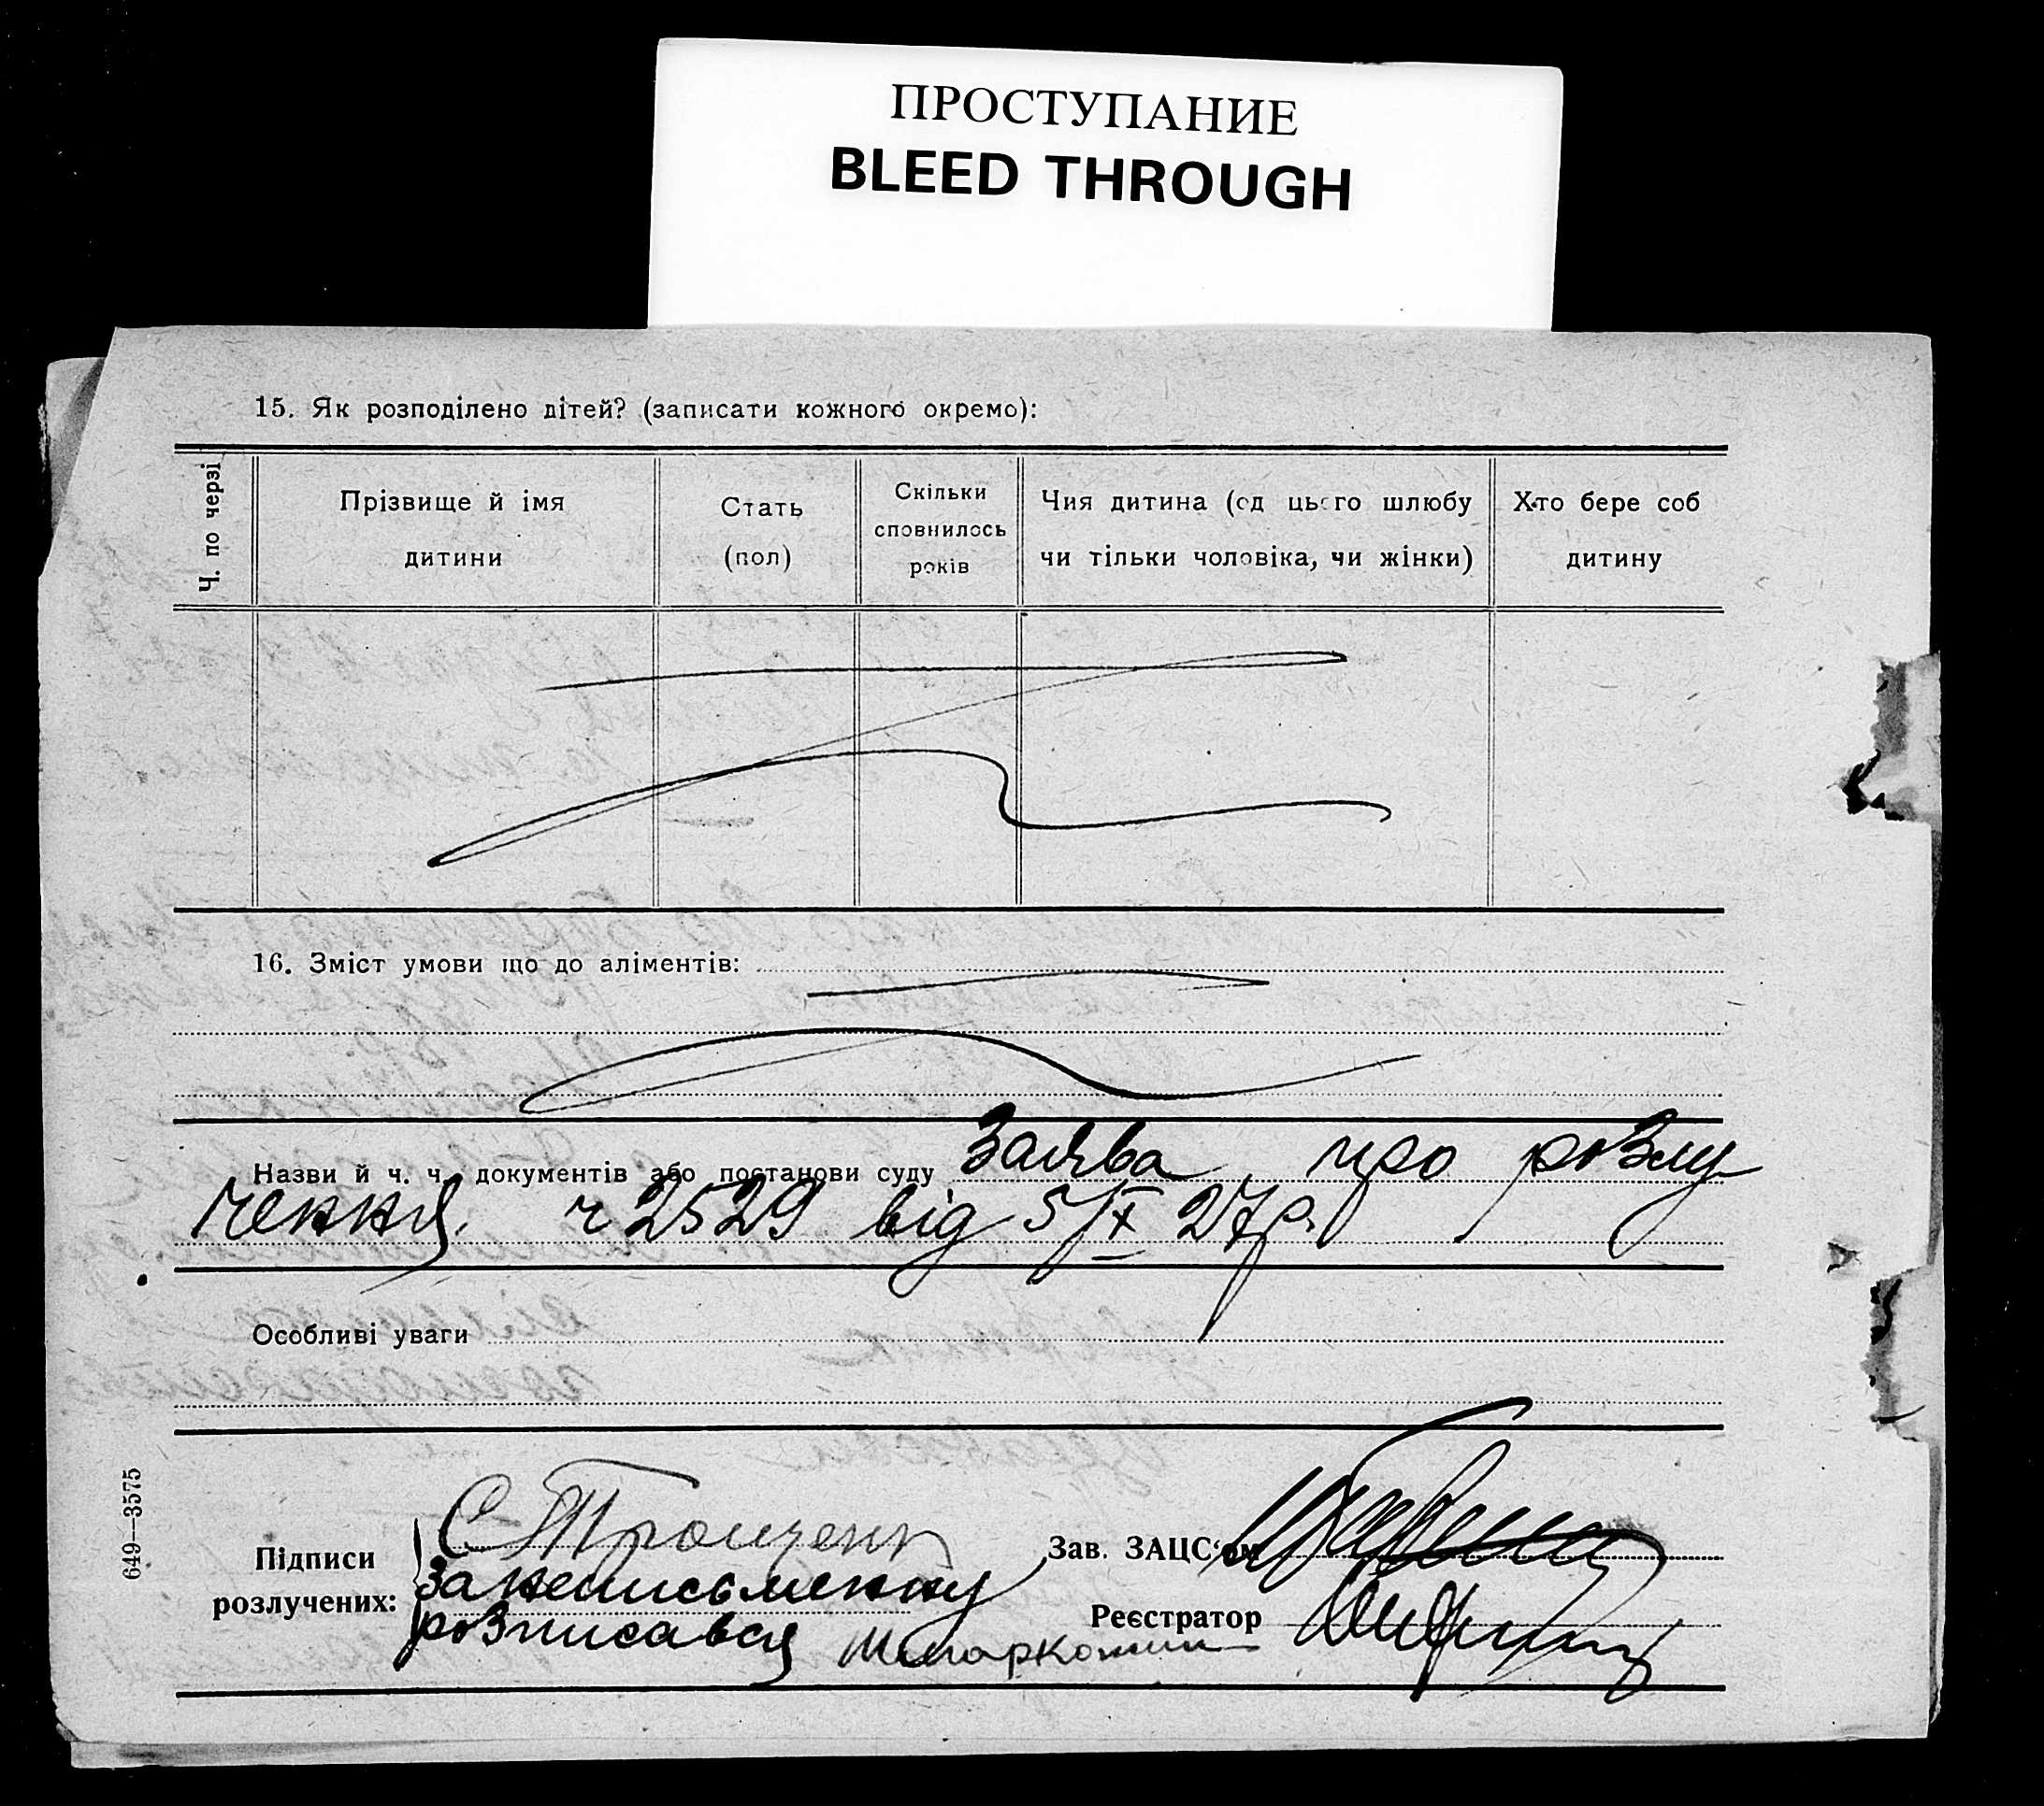 ПРОСТУПАНИЕ
BLEED THROUGH
15. Як розподілено дітей? (записати кожного окремо):
Ч. по черзі
Прізвище й імя
дитини
Стать
(пол)
Скільки
сповнилось
років
Чия дитина (од цього шлюбу
чи тільки чоловіка, чи жінки)
Хто бере соб
дитину
16. Зміст умови що до аліментів:
Назви й ч. ч. документів або постанови суду Заява про розлу
чення. ч 2529 від 5/X 27р.
Особливі уваги
649—3575
Підписи
розлучених:
За неписьменну
розписався
Зав. ЗАЦС'ом
Реєстратор